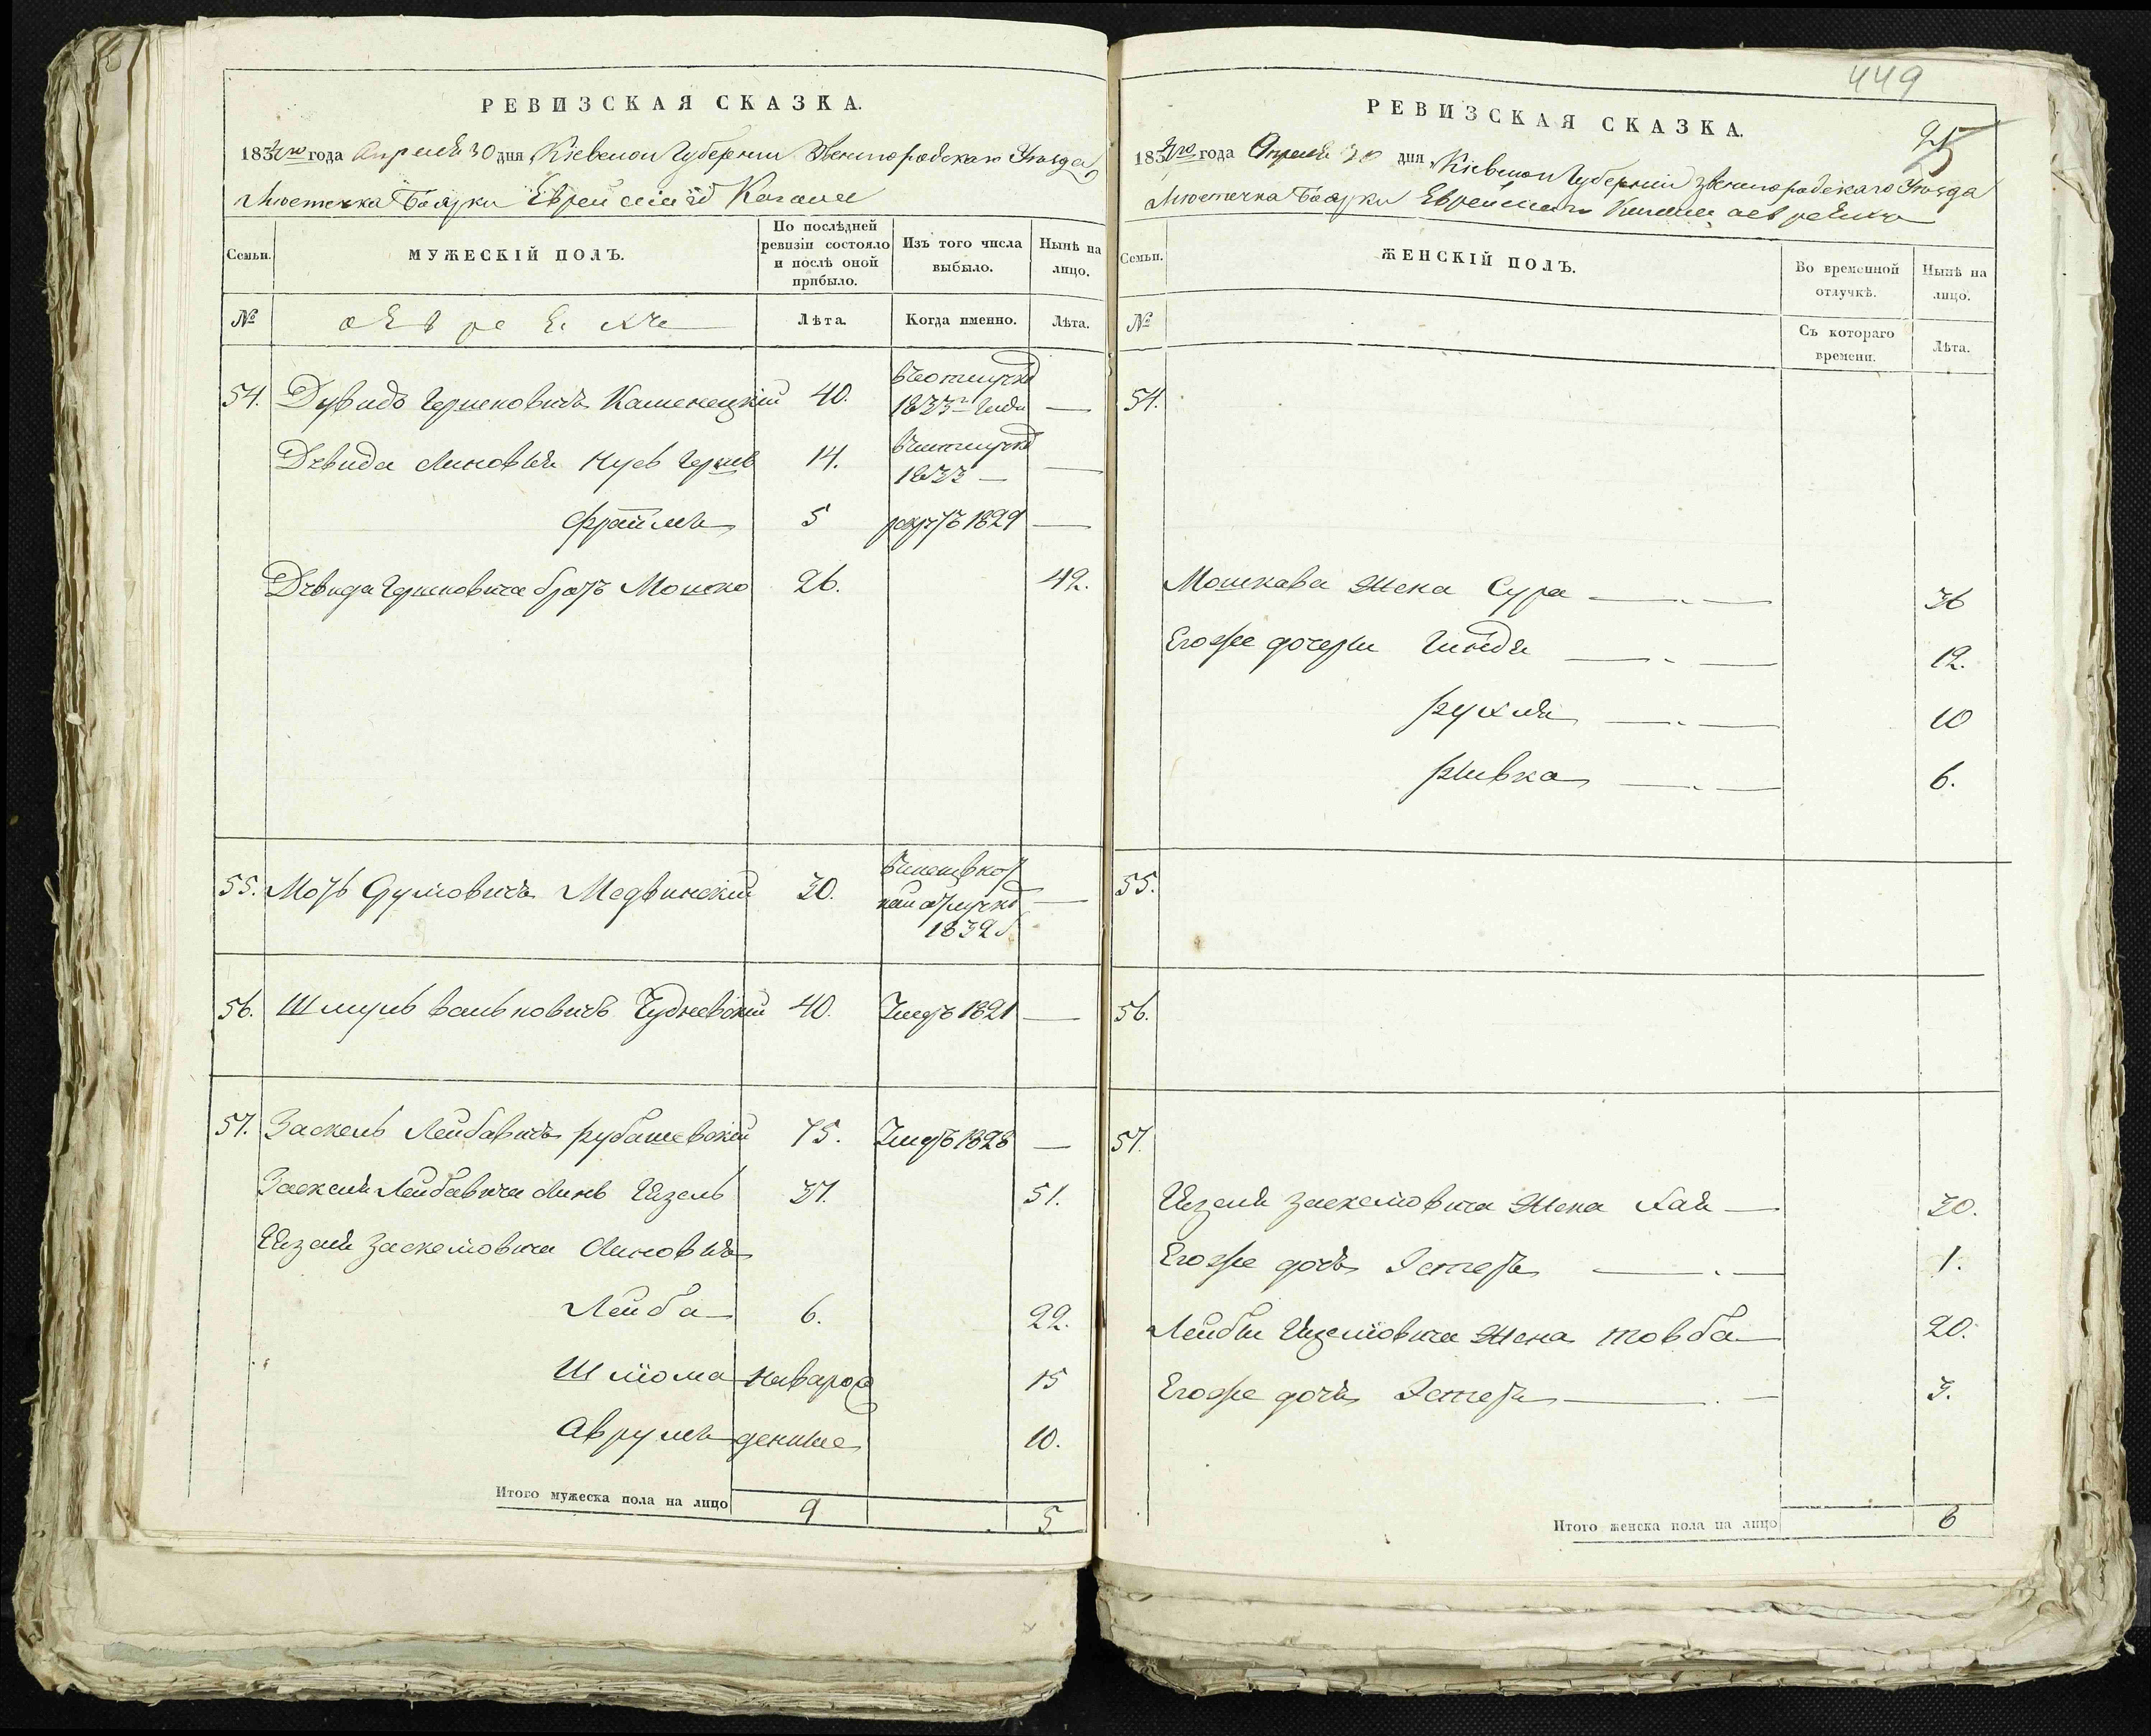 РЕВИЗСКАЯ СКАЗКА.
1834го года Апреля 30 дня, Кіевской Губерніи Звенигородскаго Уѣзда
Мѣстечка Боярки Еврейскаго Кагала
Семьи.
МУЖЕСКІЙ ПОЛЪ.
По послѣдней ревизіи состояло и послѣ оной прибыло.
Изъ того числа выбыло.
Нынѣ на лицо.
№
о Евреяхъ
Лѣта.
Когда именно.
Лѣта.
54. Дувидъ Гершковичъ Каменецкій 40. въ отлучкѣ 1833 года —
Дувида сыновья Нусь Гершъ 14. въ отлучкѣ 1833 —
Фраимъ 5 рекрутъ 1829 —
Дувида Гершковича братъ Мошко 26. 42.
55. Мотъ Сруловичъ Медвинскій 30. отлучкѣ 1832 —
56. Шмуль Вольковичъ Чудневскій 40. Умеръ 1821 —
57. Заскель Лейбовичъ Рубашевскій 75. Умеръ 1828 —
Заскеля Лейбовича сынъ Ицель 37. 51.
Ицеля Заскелиовича сыновья
Лейба 6. 22.
Шліома новорож 15
Аврумъ денные 10.
Итого мужеска пола на лицо 9 5
449
РЕВИЗСКАЯ СКАЗКА.
95
1834го года Апреля 30 дня, Кіевской Губерніи Звенигородскаго Уѣзда
Мѣстечка Боярки Еврейскаго Кагала о евреяхъ
Семьи.
ЖЕНСКІЙ ПОЛЪ.
Во временной отлучкѣ.
Нынѣ на лицо.
№
Съ котораго времени.
Лѣта.
54.
Мошкова жена Сура 36
Егоже дочери Гинда 12.
Рухля 10
Ривка 6.
55.
56.
57.
Ицеля Заскелиовича жена Хая 30.
Егоже дочь Эстеръ 1.
Лейбы Ицелиовича жена Товба 20.
Егоже дочь Эстеръ 3.
Итого женска пола на лицо 8